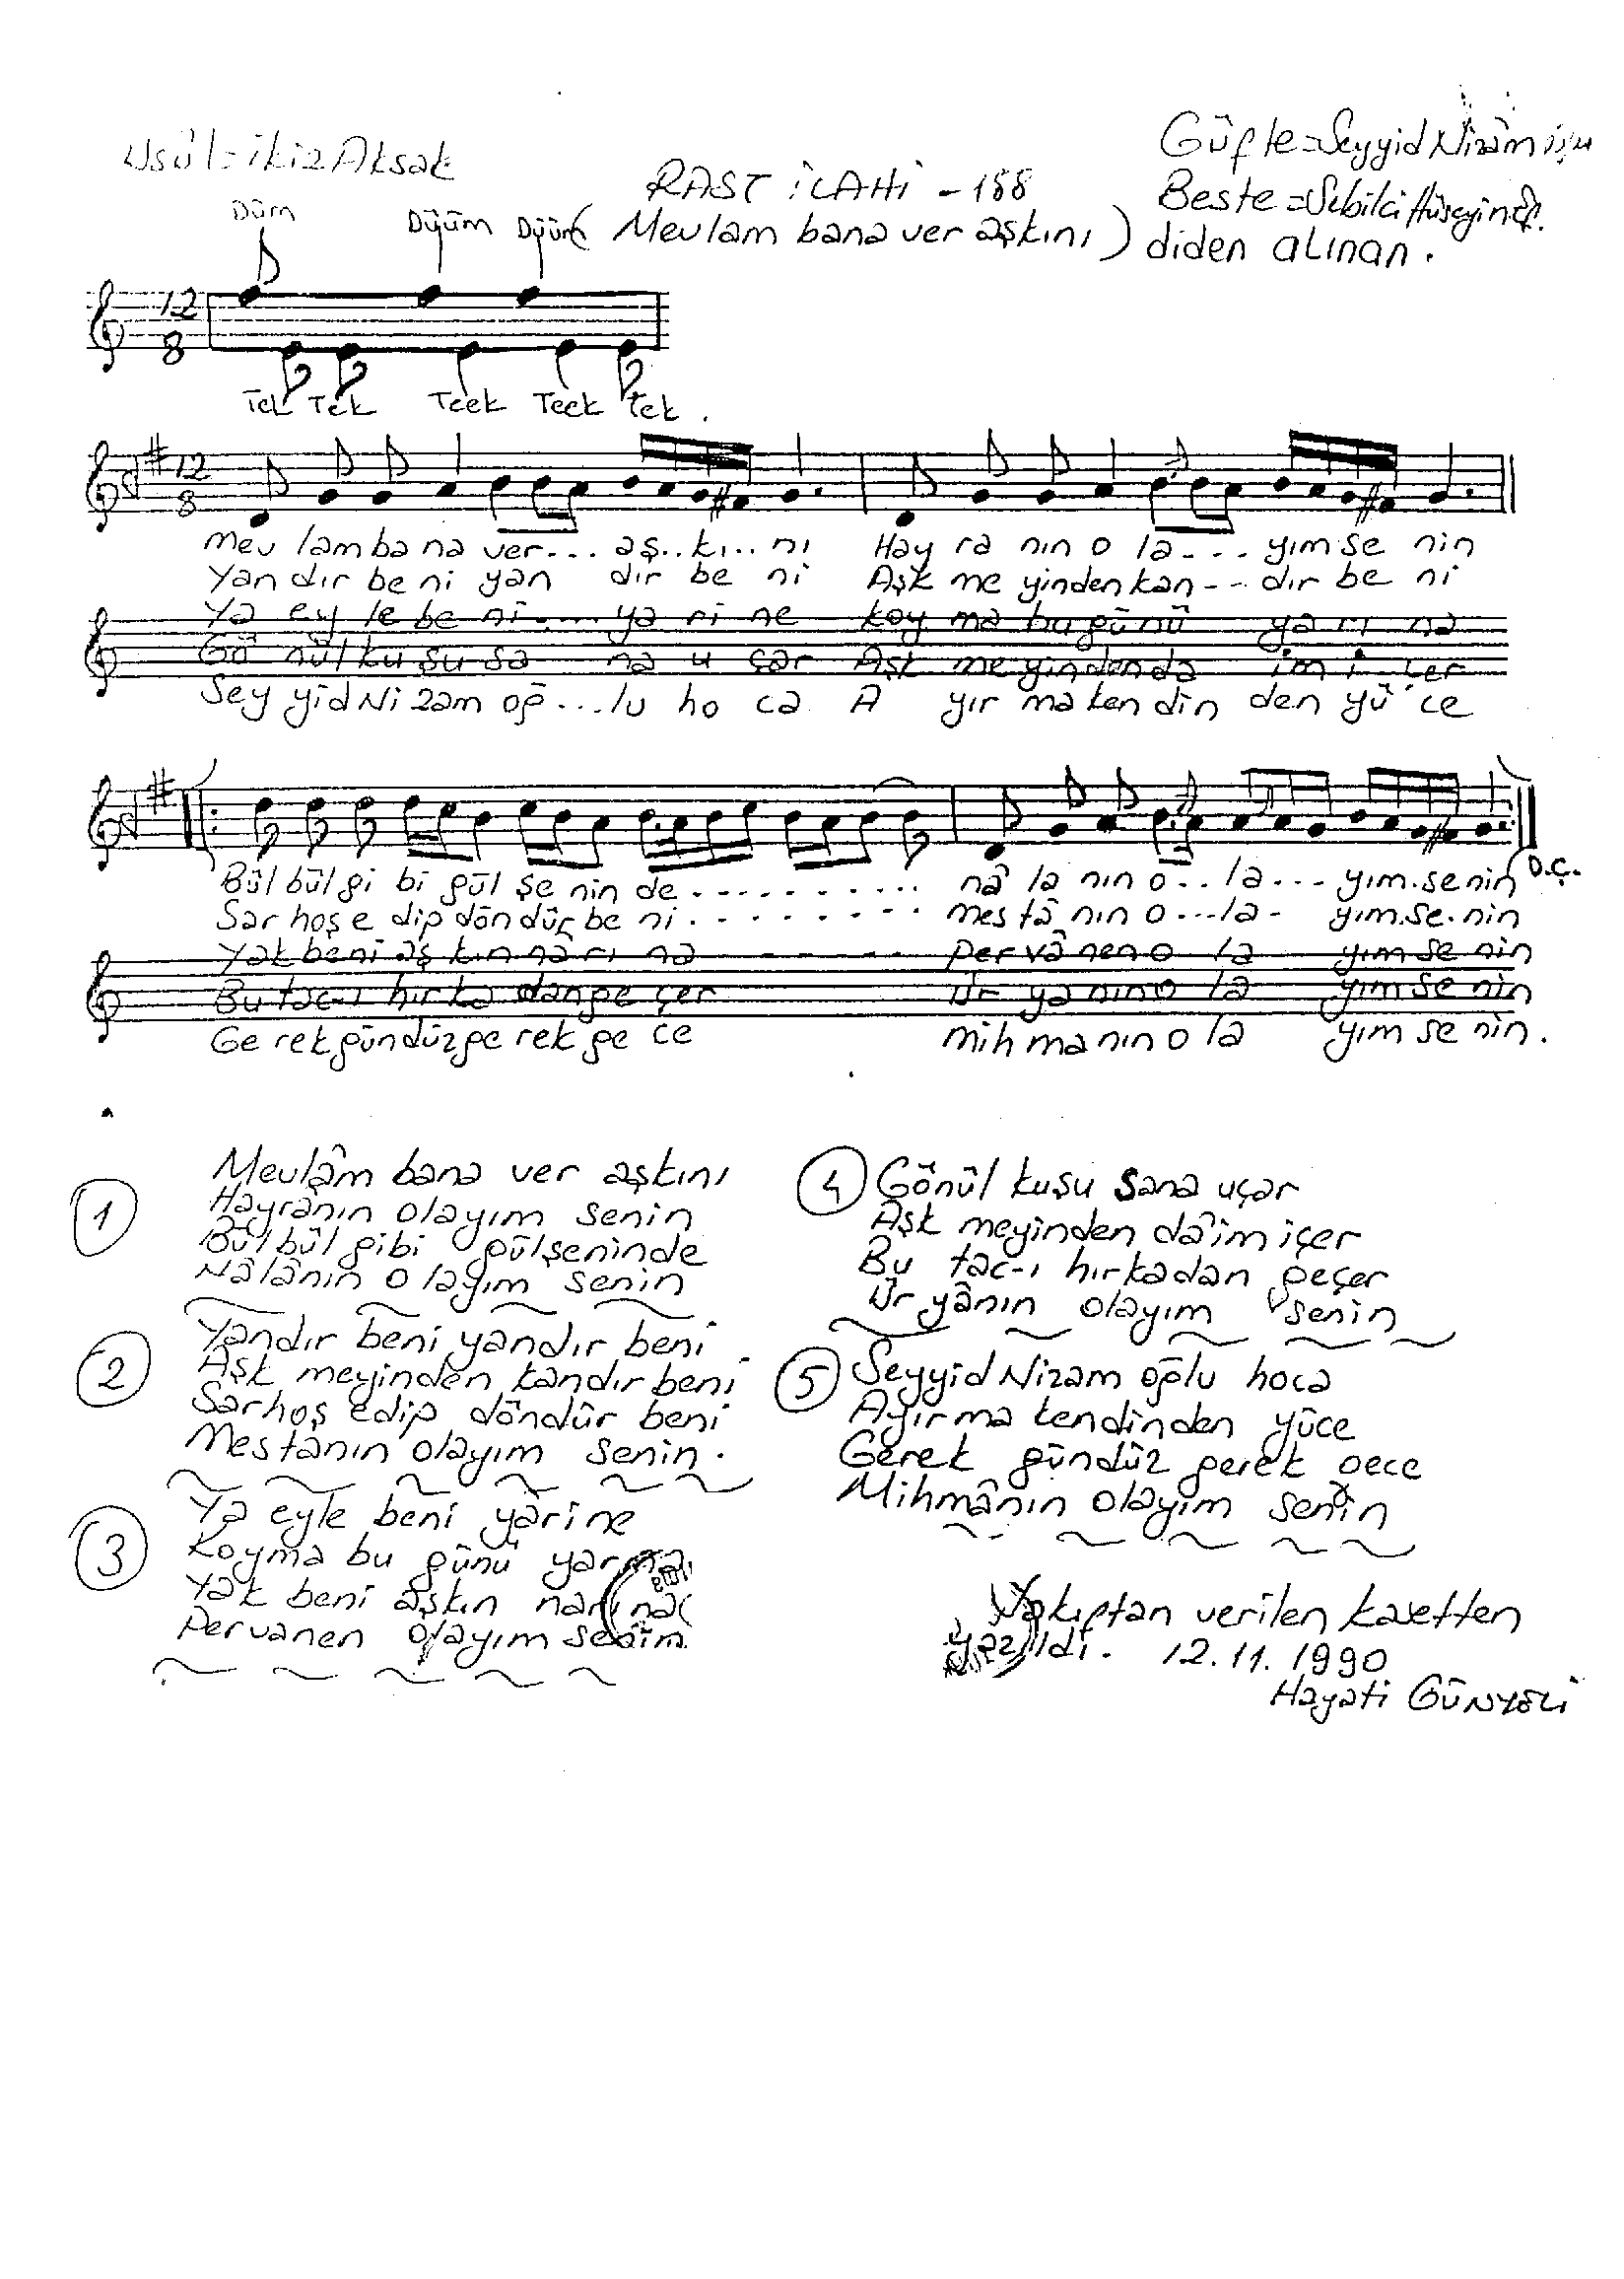 Usûl=ikiz Aksak
RAST İLAHİ - 188
(Mevlam bana ver aşkını)
Güfte=Seyyid Nizâm
Beste=Sebilci Hüseyin Ef.
diden alınan.
Düm Düüm Düüm
12
8
Tek Tek Teek Teek tek.
12
8
Mev lam ba na ver... aş..kı..nı Hay ra nın o la.... yım.se nin
Yan dır be ni yan dır be ni Aşk me yinden kan--dır be ni
Ya ey le be ni.... ya ri ne koy ma bu günü ya rı na
Gö nül ku şu sa na u çar Aşk me yinden da im i çer
Sey yid Ni zam oğ...lu ho ca A yır ma ken din den yü ce
Bül bül gi bi gül şe nin de.......... nâ la nın o..la... yım.se nin
D.Ç.
Sar hoş e dip döndür be ni......... mes tâ nın o...la- yım.se.nin
Yak be ni aş kın nâ rı na - - - - - per vâ nen o la yım se nin
Bu tac-ı hır ka dan ge çer Ür ya nın o la yım se nin
Ge rek gün düz ge rek ge ce mih ma nın o la yım se nin.
1
Mevlâm bana ver aşkını
Hayrânın olayım senin
Bülbül gibi gülşeninde
Nâlânın olayım senin
2
Yandır beni yandır beni
Aşk meyinden kandır beni
Sarhoş edip döndür beni
Mestânın olayım senin.
3
Ya eyle beni yârine
Koyma bu günü yarına
Yak beni aşkın narına
Pervanen olayım senin.
4
Gönül kuşu sana uçar
Aşk meyinden dâim içer
Bu tac-ı hırkadan geçer
Üryânın olayım senin
5
Seyyid Nizam oğlu hoca
Ayırma kendinden yüce
Gerek gündüz gerek gece
Mihmânın olayım senin
Vakıftan verilen kasetten
yazıldı. 12.11.1990
Hayati GÜNYELİ